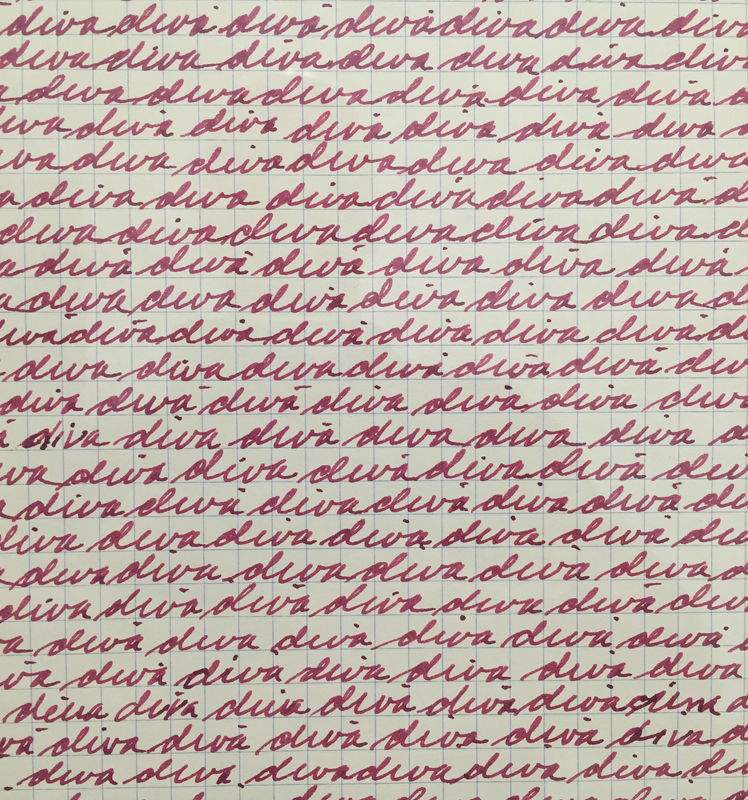 diva diva diva diva diva diva diva
diva diva diva diva diva diva div
a diva diva diva diva diva diva
iva diva diva diva diva diva diva
iva diva diva diva diva diva diva
a diva diva diva diva diva diva d
diva diva diva diva diva diva d
a diva diva diva diva diva diva
a diva diva diva diva diva diva d
iva diva diva diva diva diva diva di
diva diva diva diva diva diva div
diva diva diva diva diva diva div
a diva diva diva diva diva diva
va diva diva diva diva diva div
a diva diva diva diva diva diva di
diva diva diva diva diva diva div
a diva diva diva diva diva diva
diva diva diva diva diva diva div
a diva diva diva diva diva diva
va diva diva diva diva diva diva
diva diva diva diva diva diva diva
va diva diva diva diva diva diva d
diva diva diva diva diva diva div